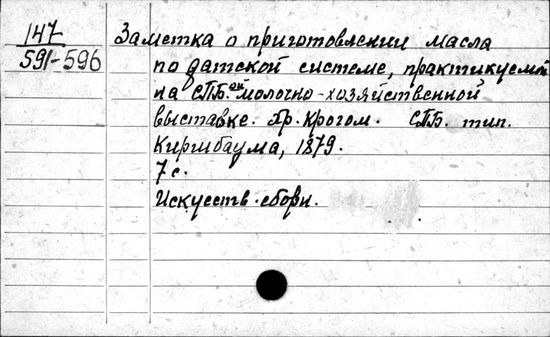 147
591-596
Заметка о приготовлении масла
по датской системе, практикуемой
на СПБ.ой молочно-хозяйственной
выставке. Гр. Крогом. СПБ. тип.
Киршбаума, 1879.
7 с.
Искусств. сборн.